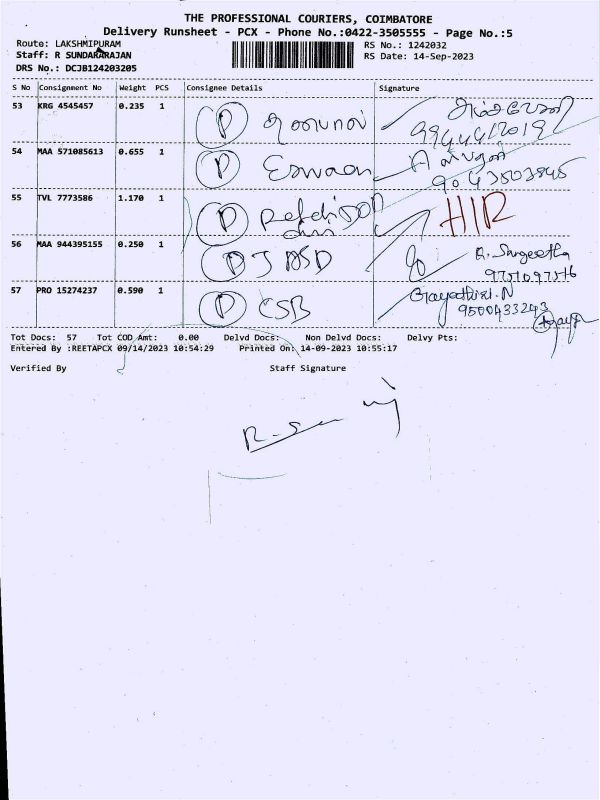 THE PROFESSIONAL COURIERS, COIMBATORE
Delivery Runsheet - PCX - Phone No.:0422-3505555 - Page No.:5
Route: LAKSHMIPURAM RS No.: 1242032
Staff: R SUNDARARAJAN RS Date: 14-Sep-2023
DRS No.: DCJB124203205
S No Consignment No Weight PCS Consignee Details Signature
53 KRG 4545457 0.235 1 P
54 MAA 571085613 0.655 1 P
9043503845
55 TVL 7773586 1.170 1 P HIR
56 MAA 944395155 0.250 1 P R. Sangeetha
57 PRO 15274237 0.590 1 P CSB Gayathiri.N
9500433243
Tot Docs: 57 Tot COD Amt: 0.00 Delvd Docs: Non Delvd Docs: Delvy Pts:
Entered By :REETAPCX 09/14/2023 10:54:29 Printed On: 14-09-2023 10:55:17
Verified By Staff Signature